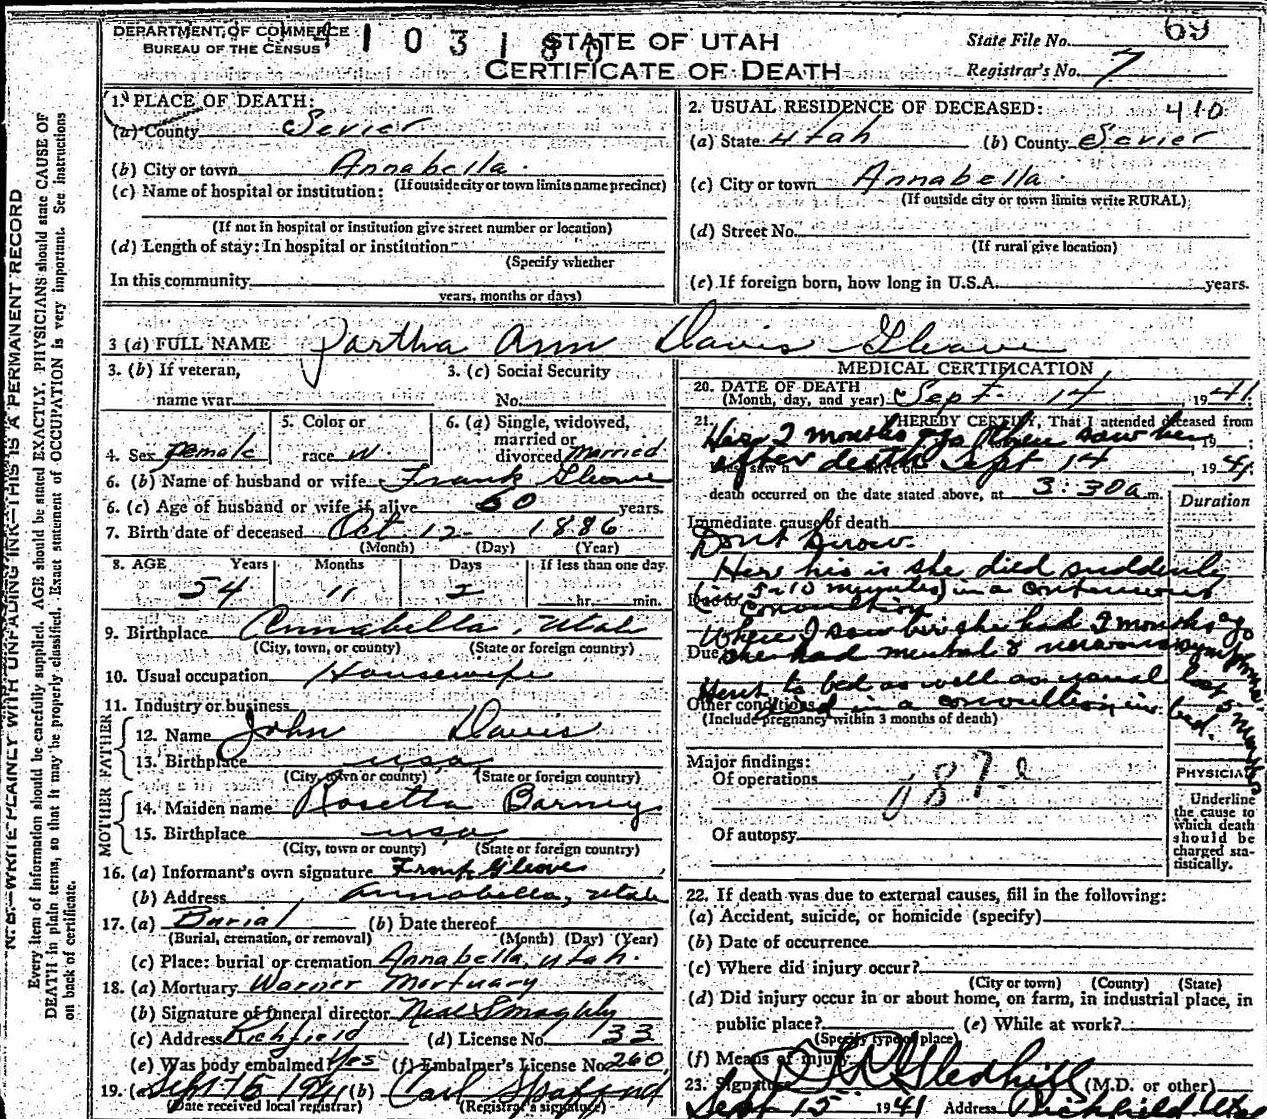 DEPARTMENT OF COMMERCE
BUREAU OF THE CENSUS
4 1 0 3 1 8 0
STATE OF UTAH
CERTIFICATE OF DEATH
State File No. 69
Registrar's No. 7
N. B.—WRITE PLAINLY WITH UNFADING INK—THIS IS A PERMANENT RECORD
Every item of information should be carefully supplied. AGE should be stated EXACTLY. PHYSICIANS should state CAUSE OF
DEATH in plain terms, so that it may be properly classified. Exact statement of OCCUPATION is very important. See instructions
on back of certificate.
1. PLACE OF DEATH:
(a) County Sevier
(b) City or town Annabella
(If outside city or town limits name precinct)
(c) Name of hospital or institution:
(If not in hospital or institution give street number or location)
(d) Length of stay: In hospital or institution
(Specify whether
In this community
years, months or days)
2. USUAL RESIDENCE OF DECEASED: 410
(a) State Utah (b) County Sevier
(c) City or town Annabella
(If outside city or town limits write RURAL)
(d) Street No.
(If rural give location)
(e) If foreign born, how long in U.S.A. years.
3 (a) FULL NAME Ann Davis Gleave
3. (b) If veteran,
name war
3. (c) Social Security
No.
4. Sex Female
5. Color or
race W.
6. (a) Single, widowed,
married or
divorced Married
6. (b) Name of husband or wife Frank Gleave
6. (c) Age of husband or wife if alive 60 years.
7. Birth date of deceased Oct 12 1886
(Month) (Day) (Year)
8. AGE Years Months Days If less than one day
54 11 2 hr. min.
9. Birthplace Annabella, Utah
(City, town, or county) (State or foreign country)
10. Usual occupation Housewife
11. Industry or business
FATHER
12. Name John Davis
13. Birthplace usa
(City, town or county) (State or foreign country)
MOTHER
14. Maiden name Rosetta Barney
15. Birthplace usa
(City, town or county) (State or foreign country)
16. (a) Informant's own signature Frank Gleave
(b) Address Annabella, Utah
17. (a) Burial (b) Date thereof
(Burial, cremation, or removal) (Month) (Day) (Year)
(c) Place: burial or cremation Annabella, Utah.
18. (a) Mortuary Warner Mortuary
(b) Signature of funeral director
(c) Address Richfield (d) License No. 33
(e) Was body embalmed? Yes (f) Embalmer's License No. 260
19. (a) Sept 15 1941 (b) Carl
(Date received local registrar) (Registrar's signature)
MEDICAL CERTIFICATION
20. DATE OF DEATH
(Month, day, and year) Sept. 14, 1941
21. I HEREBY CERTIFY, That I attended deceased from
2 months ago then saw her 19
after death Sept 14, 1941
death occurred on the date stated above, at 3:30 a m.
Duration
Immediate cause of death
Dont know.
she died suddenly
5-10 minutes) in a
Due to convultion
When I saw her she had 2 months ago
Due she had mental & nervous symptoms
Went to bed as well as usual
Other conditions died in a convultion in bed.
(Include pregnancy within 3 months of death)
Major findings:
Of operations
87
Of autopsy
PHYSICIAN
Underline
the cause to
which death
should be
charged sta-
tistically.
22. If death was due to external causes, fill in the following:
(a) Accident, suicide, or homicide (specify)
(b) Date of occurrence
(c) Where did injury occur?
(City or town) (County) (State)
(d) Did injury occur in or about home, on farm, in industrial place, in
public place? (e) While at work?
(Specify type of place)
(f) Means of injury
23. Signature Gledhill (M.D. or other)
Sept 15 1941 Address Richfield Ut